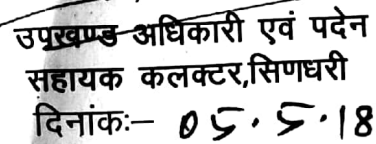 उपखण्ड अधिकारी एवं पदेन
सहायक कलक्टर,सिणधरी
दिनांकः– 05.5.18